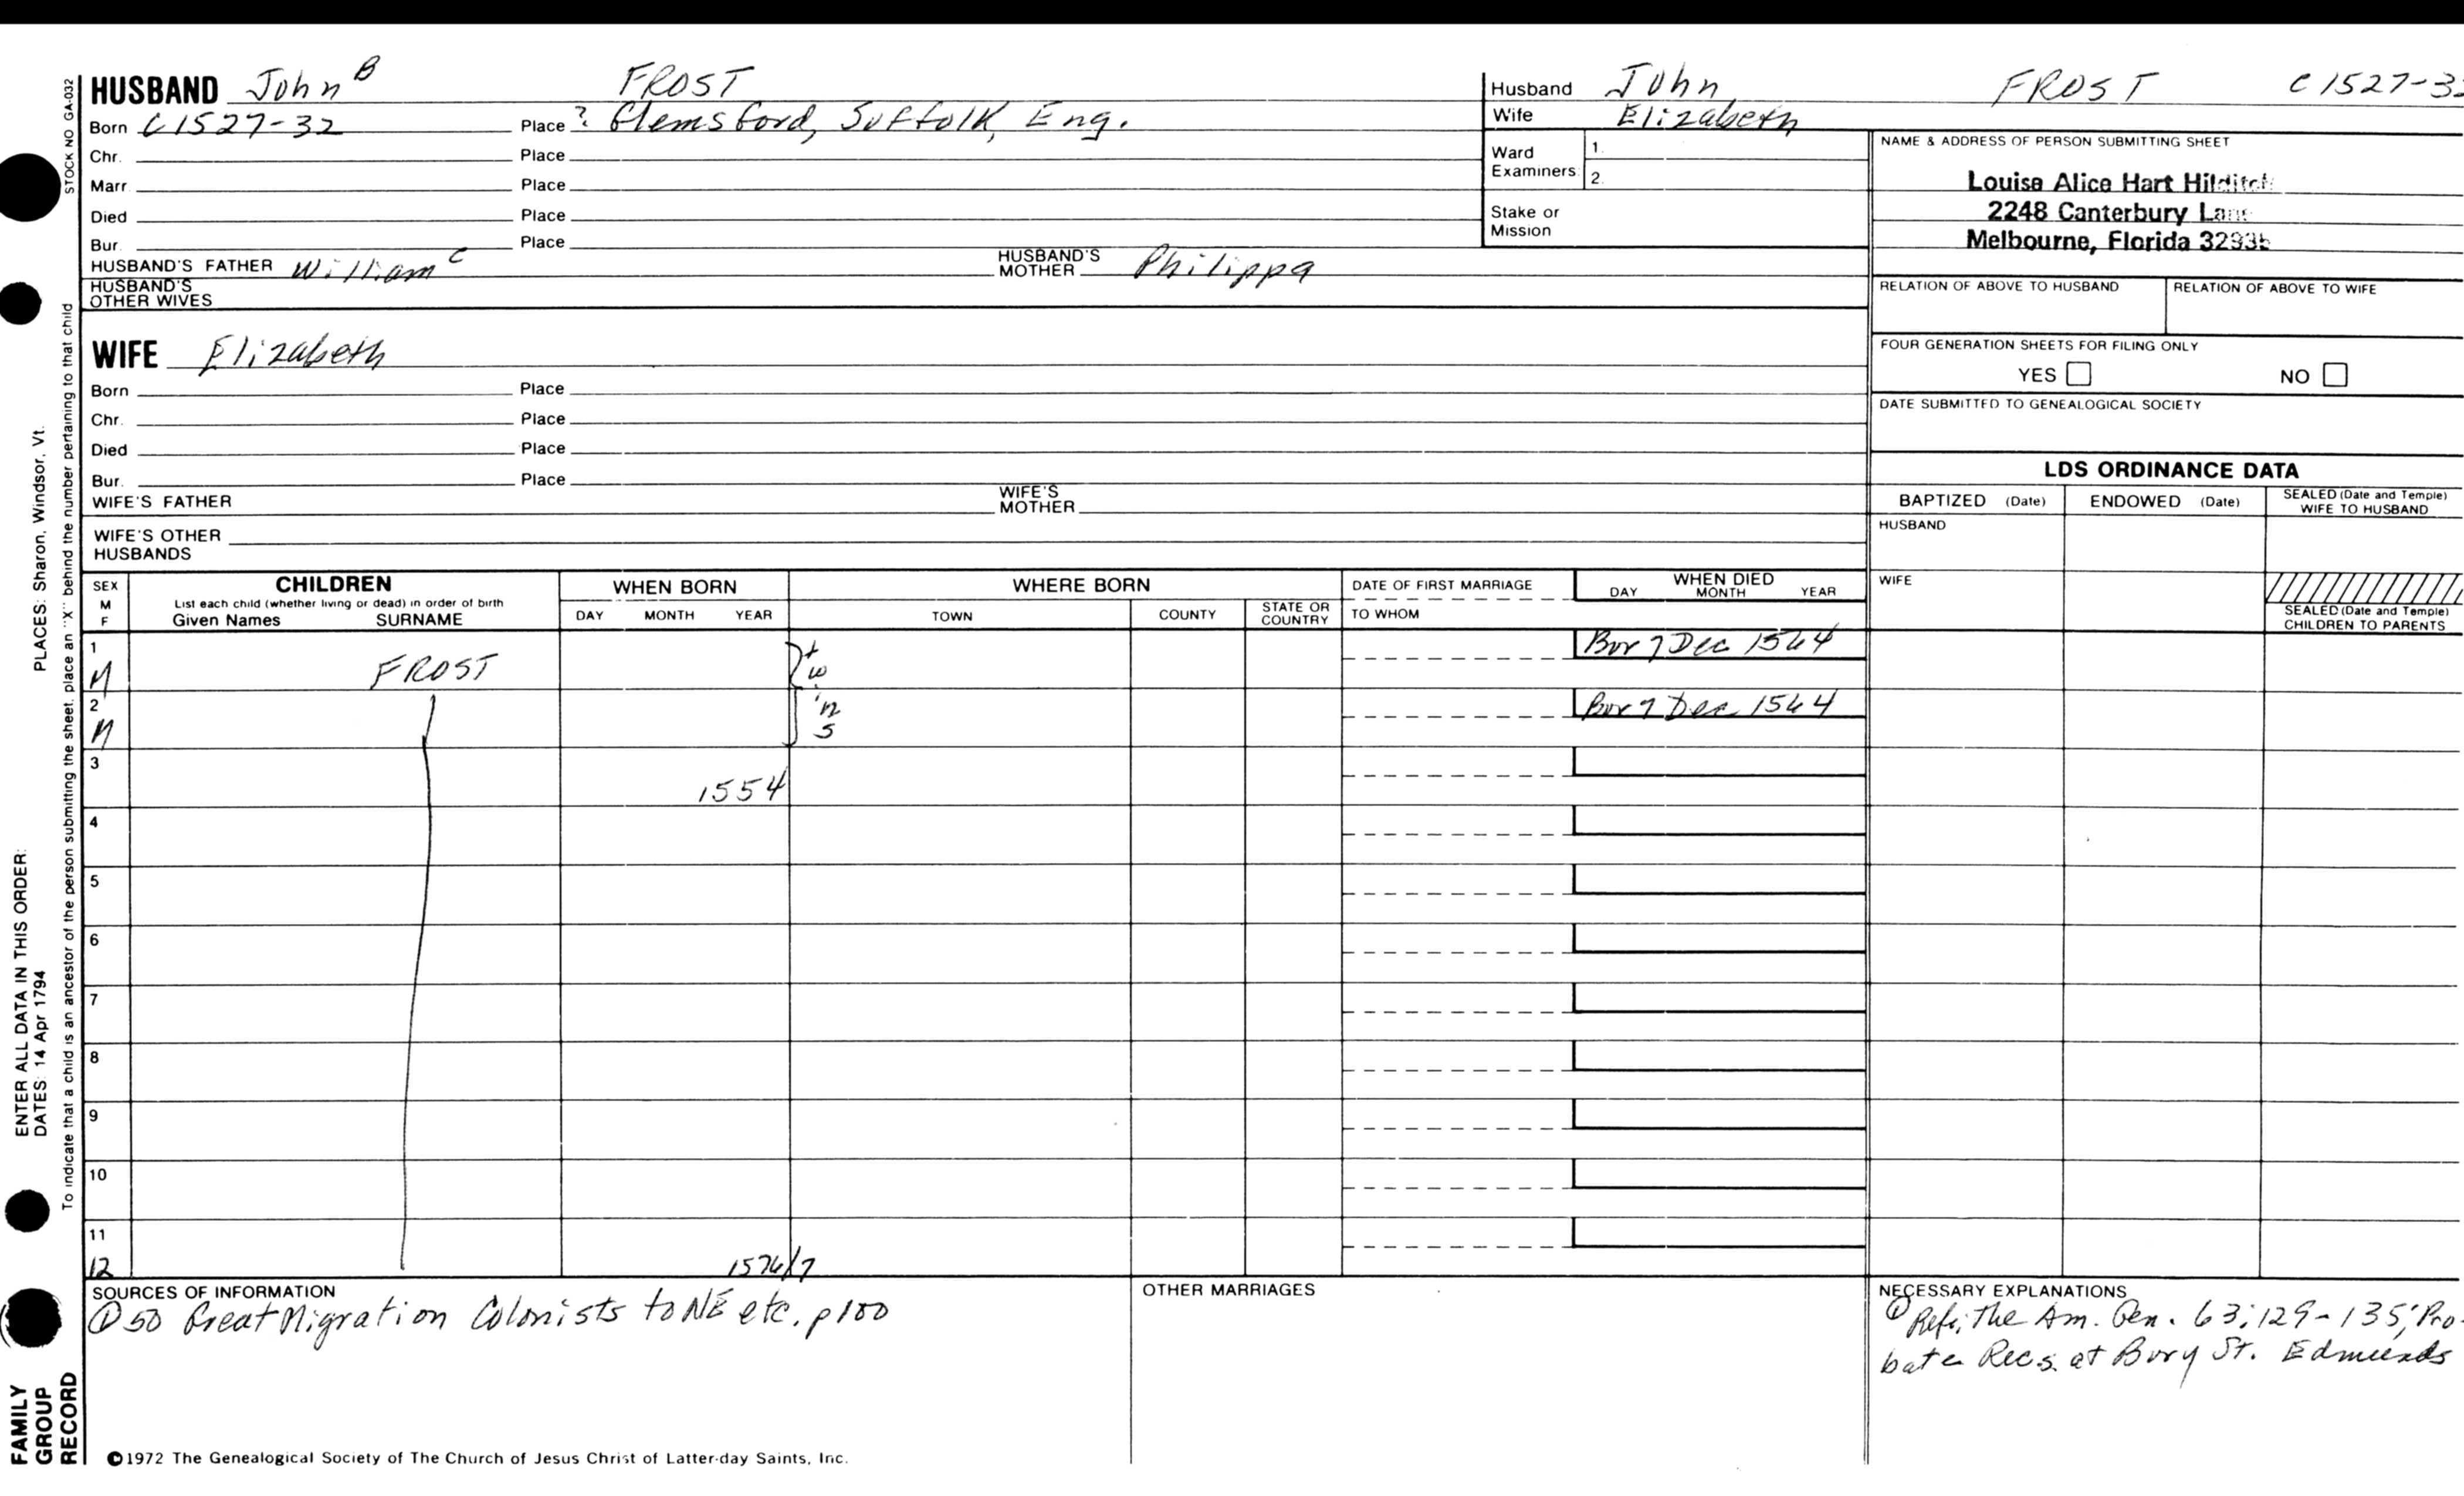 HUSBAND John B FROST
Born C1527-32 Place ? Glemsford, Suffolk, Eng.
Chr. Place
Marr. Place
Died Place
Bur. Place
HUSBAND'S FATHER William C HUSBAND'S MOTHER Philippa
HUSBAND'S OTHER WIVES
Husband John FROST C1527-32
Wife Elizabeth
Ward Examiners 1.
2.
Stake or Mission
NAME & ADDRESS OF PERSON SUBMITTING SHEET
Louise Alice Hart Hilditch
2248 Canterbury Lane
Melbourne, Florida 32935
RELATION OF ABOVE TO HUSBAND RELATION OF ABOVE TO WIFE
FOUR GENERATION SHEETS FOR FILING ONLY
YES NO
DATE SUBMITTED TO GENEALOGICAL SOCIETY
WIFE Elizabeth
Born Place
Chr. Place
Died Place
Bur. Place
WIFE'S FATHER WIFE'S MOTHER
WIFE'S OTHER HUSBANDS
LDS ORDINANCE DATA
BAPTIZED (Date) ENDOWED (Date) SEALED (Date and Temple) WIFE TO HUSBAND
HUSBAND
WIFE
SEALED (Date and Temple) CHILDREN TO PARENTS
SEX M F
CHILDREN
List each child (whether living or dead) in order of birth
Given Names SURNAME
WHEN BORN
DAY MONTH YEAR
WHERE BORN
TOWN COUNTY STATE OR COUNTRY
DATE OF FIRST MARRIAGE
TO WHOM
WHEN DIED
DAY MONTH YEAR
1 M FROST twins Bur 7 Dec 1564
2 M Bur 7 Dec 1564
3 1554
4
5
6
7
8
9
10
11
12 1576/7
SOURCES OF INFORMATION
① 50 Great Migration Colonists to NE etc. p100
OTHER MARRIAGES
NECESSARY EXPLANATIONS
① Refs; The Am. Gen. 63:129-135; Pro-
bate Recs. at Bury St. Edmunds
©1972 The Genealogical Society of The Church of Jesus Christ of Latter-day Saints, Inc.
STOCK NO GA-032
To indicate that a child is an ancestor of the person submitting the sheet, place an "X" behind the number pertaining to that child
PLACES: Sharon, Windsor, Vt.
ENTER ALL DATA IN THIS ORDER:
DATES: 14 Apr 1794
FAMILY
GROUP
RECORD